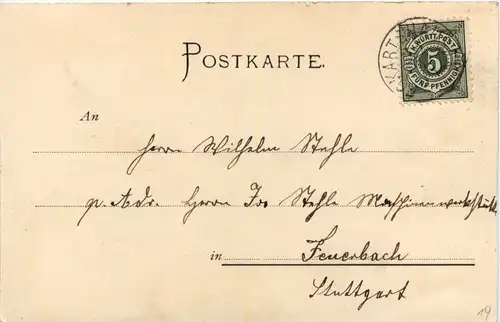 POSTKARTE.
K.WÜRTT.POST
5
FÜNF PFENNIG
An
Herrn Wilhelm Stehle
p. Adr. Herrn Jos Stehle Maschinenwerkstätte
in Feuerbach
Stuttgart
19